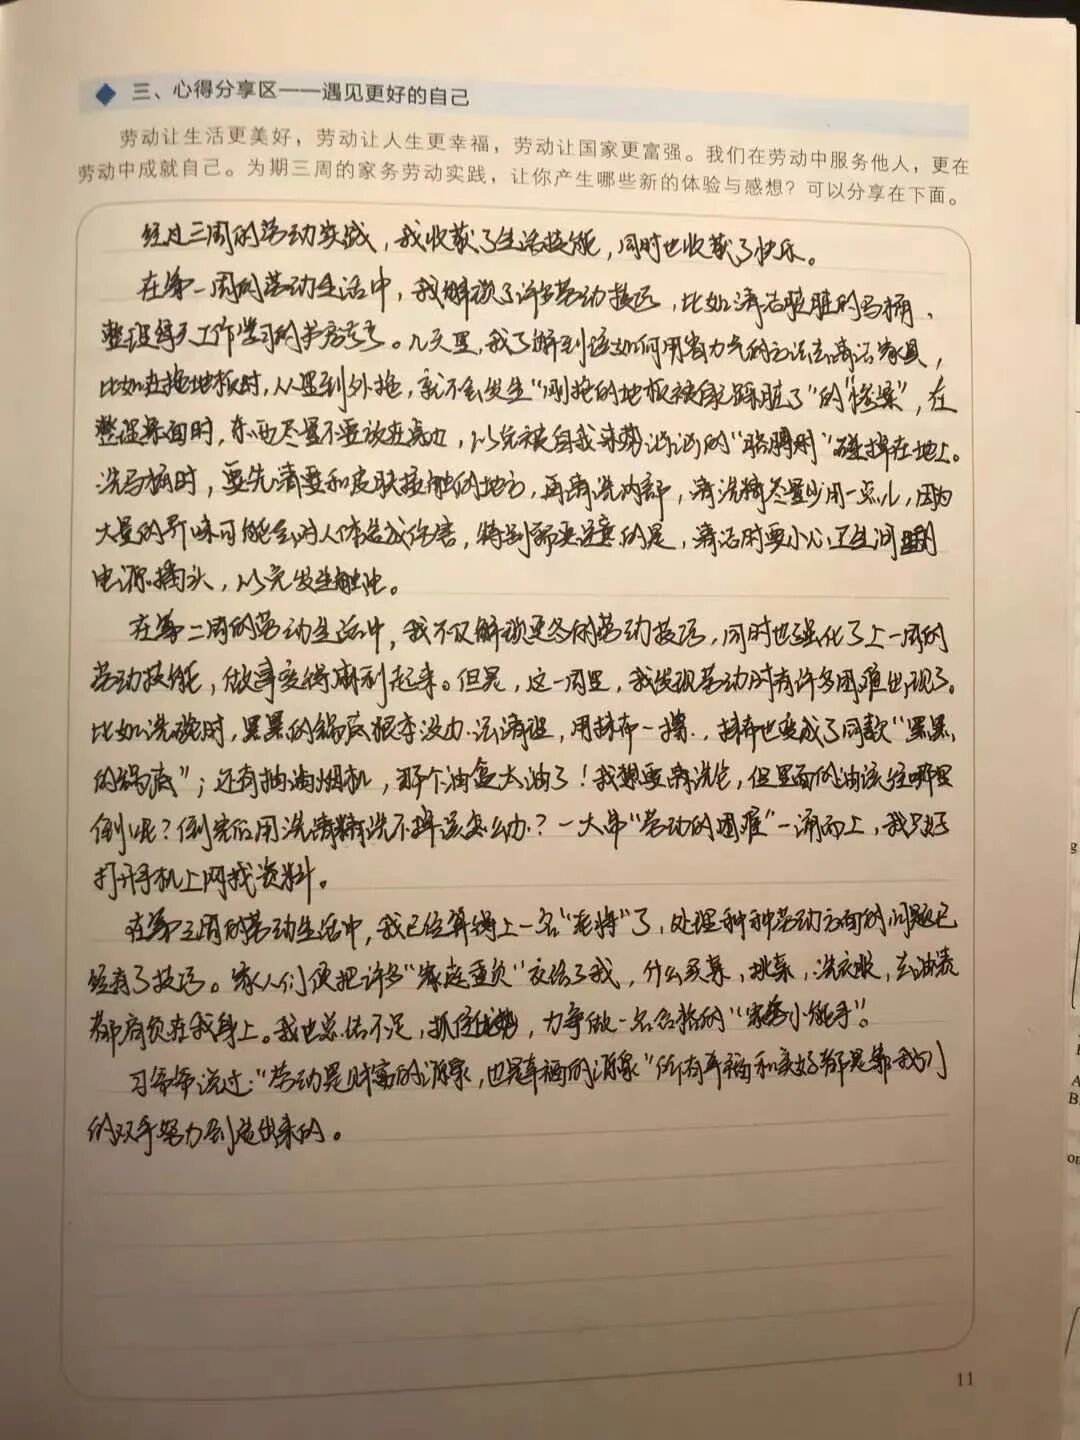 三、心得分享区——遇见更好的自己
劳动让生活更美好，劳动让人生更幸福，劳动让国家更富强。我们在劳动中服务他人，更在
劳动中成就自己。为期三周的家务劳动实践，让你产生哪些新的体验与感想？可以分享在下面。
经过三周的劳动实践，我收获了生活技能，同时也收获了快乐。
在第一周的劳动生活中，我解锁了许多劳动技巧，比如清洁脏脏的马桶、
整理每天工作学习的书房等等。几天里，我了解到该如何用省力气的方法去清洁家具，
比如在拖地板时，从里到外拖，就不会发生“刚拖的地板被自己踩脏了”的“惨案”，在
整理桌面时，东西尽量不要放在高边，以免被自我来势汹汹的“胳膊肘”碰掉在地上。
洗马桶时，要先清理和皮肤接触的地方，再清洗内部，清洗精尽量少用一点儿，因为
大量的异味可能会对人体造成伤害，特别需要注意的是，清洁时要小心卫生间
电源插头，以免发生触电。
在第二周的劳动生活中，我不仅解锁更多的劳动技巧，同时也强化了上一周的
劳动技能，做事变得麻利起来。但是，这一周里，我发现劳动时有许多困难出现了。
比如洗碗时，黑黑的锅底根本没办法清理，用抹布一擦，抹布也变成了同款“黑黑
的锅底”；还有抽油烟机，那个油盒太油了！我想要清洗它，但里面的油该往哪里
倒呢？倒完后用洗清精洗不掉该怎么办？一大串“劳动的困难”一涌而上，我只好
打开手机上网找资料。
在第三周的劳动生活中，我已经算得上一名“老将”了，处理种种劳动方面的问题已
经有了技巧。家人们便把许多“家庭重负”交给了我，什么买菜，挑菜，洗衣服，去油渍
都肩负在我身上。我也总结不足，抓住优势，力争做一名合格的“家务小能手”。
习爷爷说过：“劳动是财富的源泉，也是幸福的源泉”所有幸福和美好都是靠我们
的双手努力创造出来的。
11